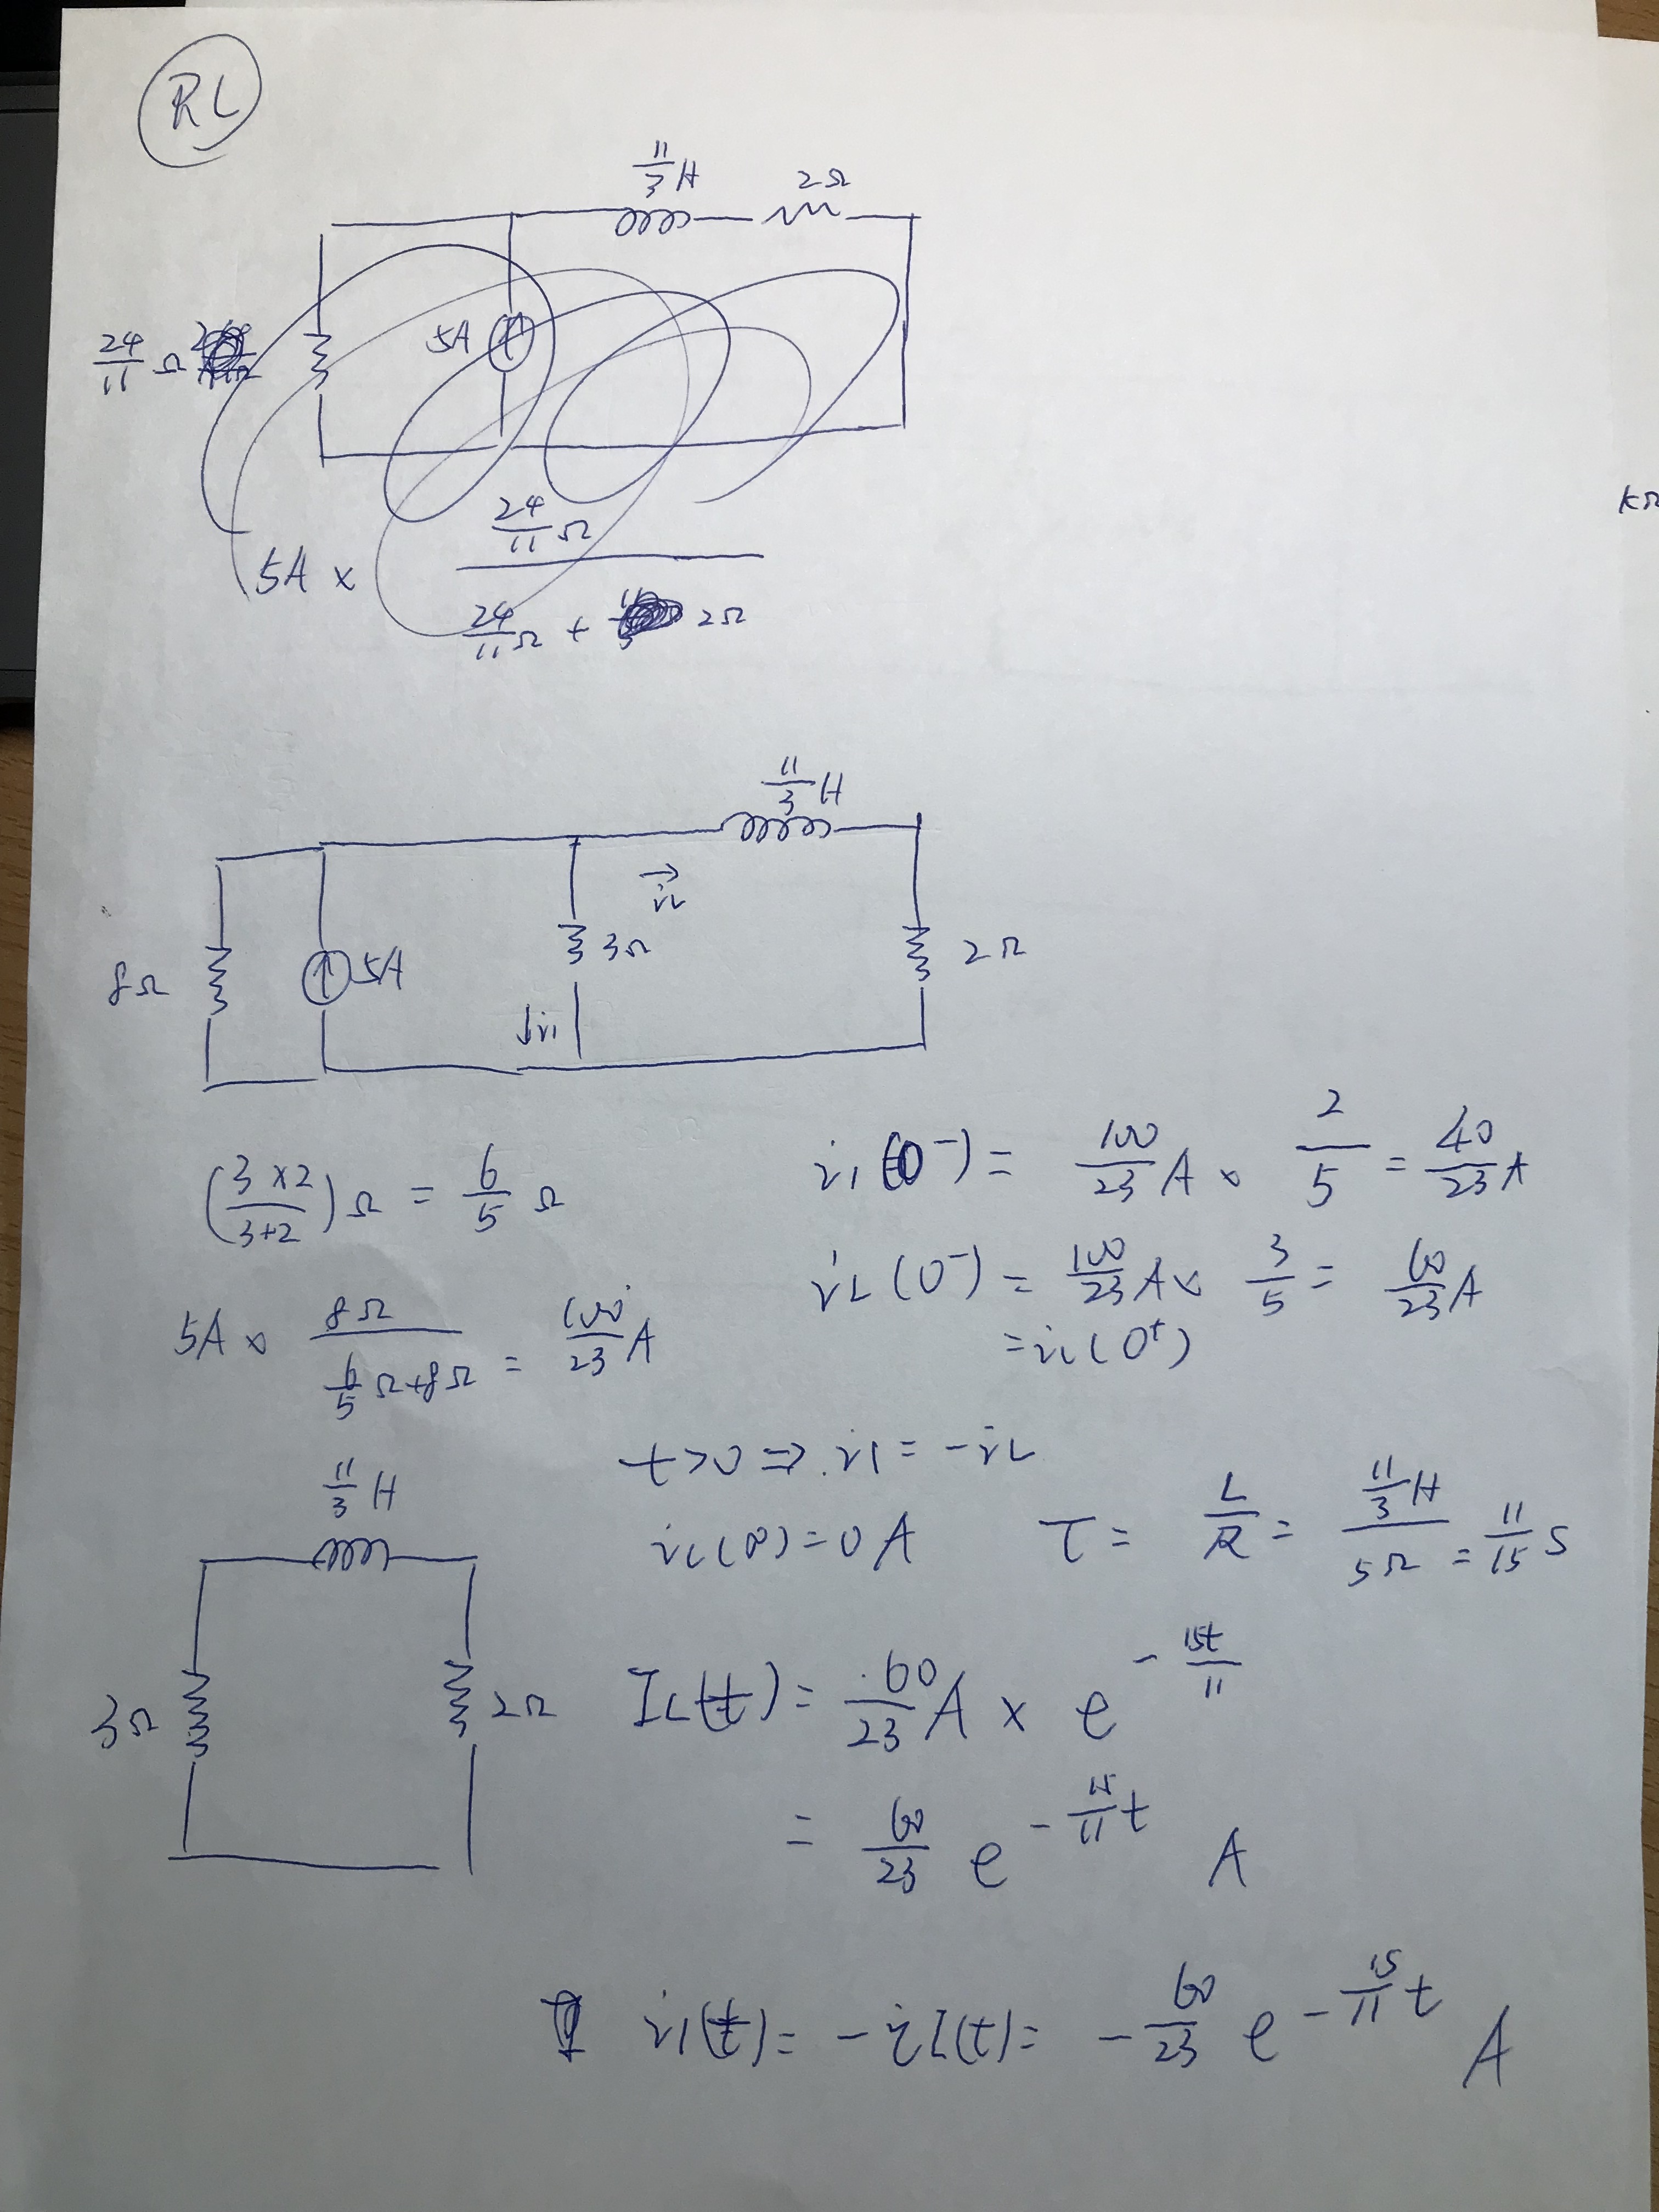 RL
11/3 H 2Ω
24/11 Ω 5A
5A × (24/11 Ω) / (24/11 Ω + 2Ω)
kΩ
11/3 H
iL
8Ω 5A 3Ω 2Ω
↓i1
((3×2)/(3+2)) Ω = 6/5 Ω
5A × 8Ω / (6/5 Ω + 8Ω) = 100/23 A
i1(0⁻) = 100/23 A × 2/5 = 40/23 A
iL(0⁻) = 100/23 A × 3/5 = 60/23 A
= iL(0⁺)
t>0 ⇒ i1 = -iL
iL(∞) = 0A τ = L/R = (11/3 H)/(5Ω) = 11/15 s
11/3 H
3Ω 2Ω
IL(t) = 60/23 A × e^(-15t/11)
= 60/23 e^(-15/11 t) A
i1(t) = -iL(t) = -60/23 e^(-15/11 t) A